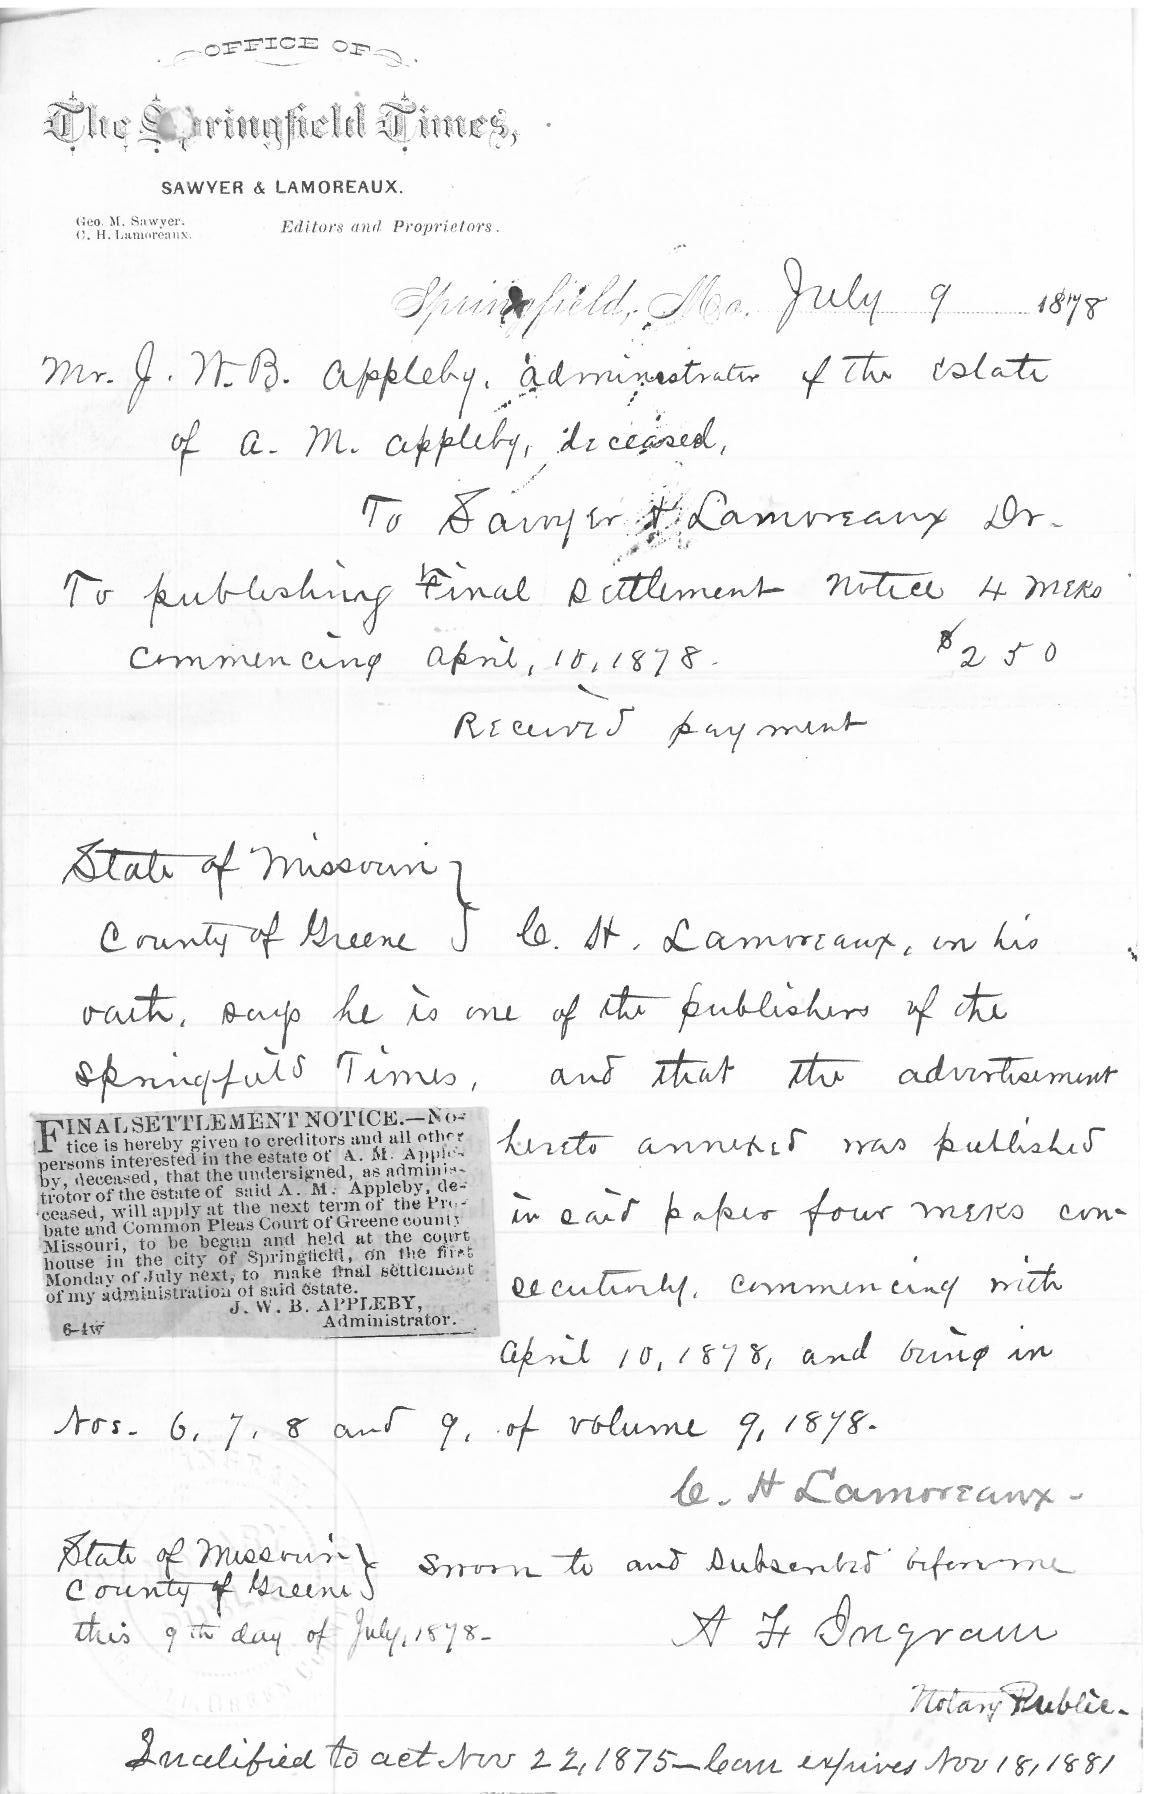 OFFICE OF
The Springfield Times,
SAWYER & LAMOREAUX.
Geo. M. Sawyer.
C. H. Lamoreaux.
Editors and Proprietors.
Springfield, Mo. July 9 1878
Mr. J. W. B. Appleby, administrator of the estate
of A. M. Appleby, deceased,
To Sawyer & Lamoreaux Dr.
To publishing Final Settlement Notice 4 weeks
commencing April, 10, 1878. $2 50
Received payment
State of Missouri }
County of Greene } C. H. Lamoreaux, on his
oath, says he is one of the publishers of the
Springfield Times, and that the advertisement
hereto annexed was published
in said paper four weeks con-
secutively, commencing with
April 10, 1878, and being in
FINAL SETTLEMENT NOTICE.—No-
tice is hereby given to creditors and all other
persons interested in the estate of A. M. Apple-
by, deceased, that the undersigned, as adminis-
trotor of the estate of said A. M. Appleby, de-
ceased, will apply at the next term of the Pro-
bate and Common Pleas Court of Greene county
Missouri, to be begun and held at the court
house in the city of Springfield, on the first
Monday of July next, to make final settlement
of my administration of said estate.
J. W. B. APPLEBY,
6-4w Administrator.
Nos. 6, 7, 8 and 9, of volume 9, 1878.
C. H Lamoreaux.
State of Missouri }
County of Greene } Sworn to and subscribed before me
this 9th day of July, 1878.
A F Ingram
Notary Public.
Qualified to act Nov 22, 1875— Com expires Nov 18, 1881